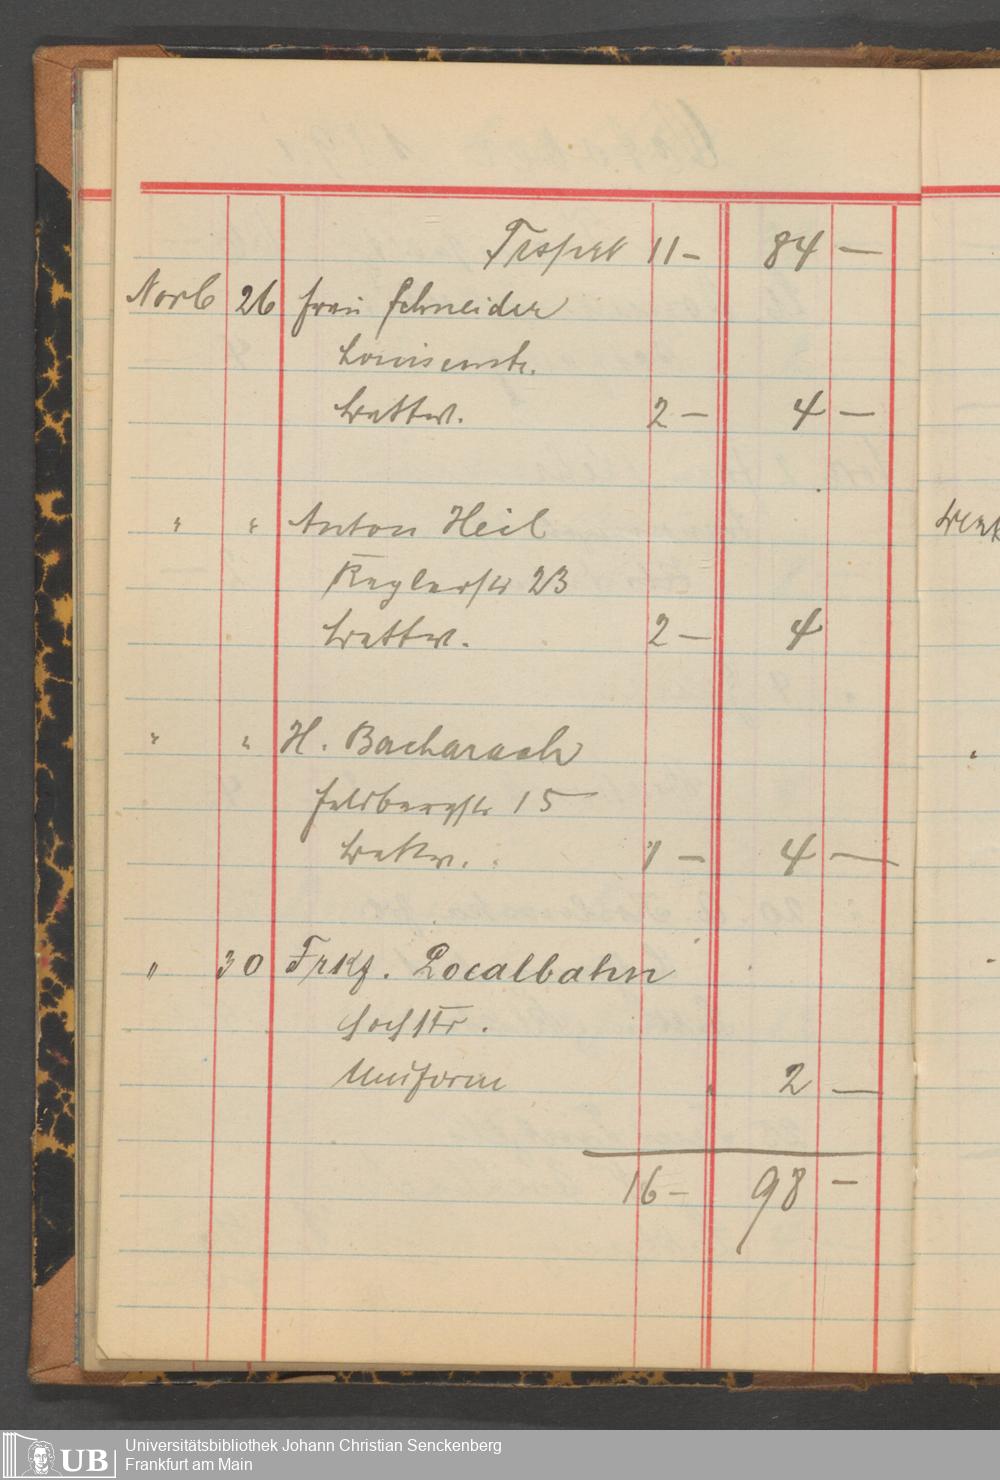 Trsprt 11 – 84 –
Novb 26 Frau Schneider
Louisenstr.
Bettw. 2 – 4 –
" " Anton Heil
Keglerstr 23
Bettw. 2 – 4
" " H. Bacharach
Feldbergstr 15
Bettw. 1 – 4 –
" 30 Frkf. Localbahn
Hochstr.
Uniform 2 –
16 – 98 –
UB
Universitätsbibliothek Johann Christian Senckenberg
Frankfurt am Main